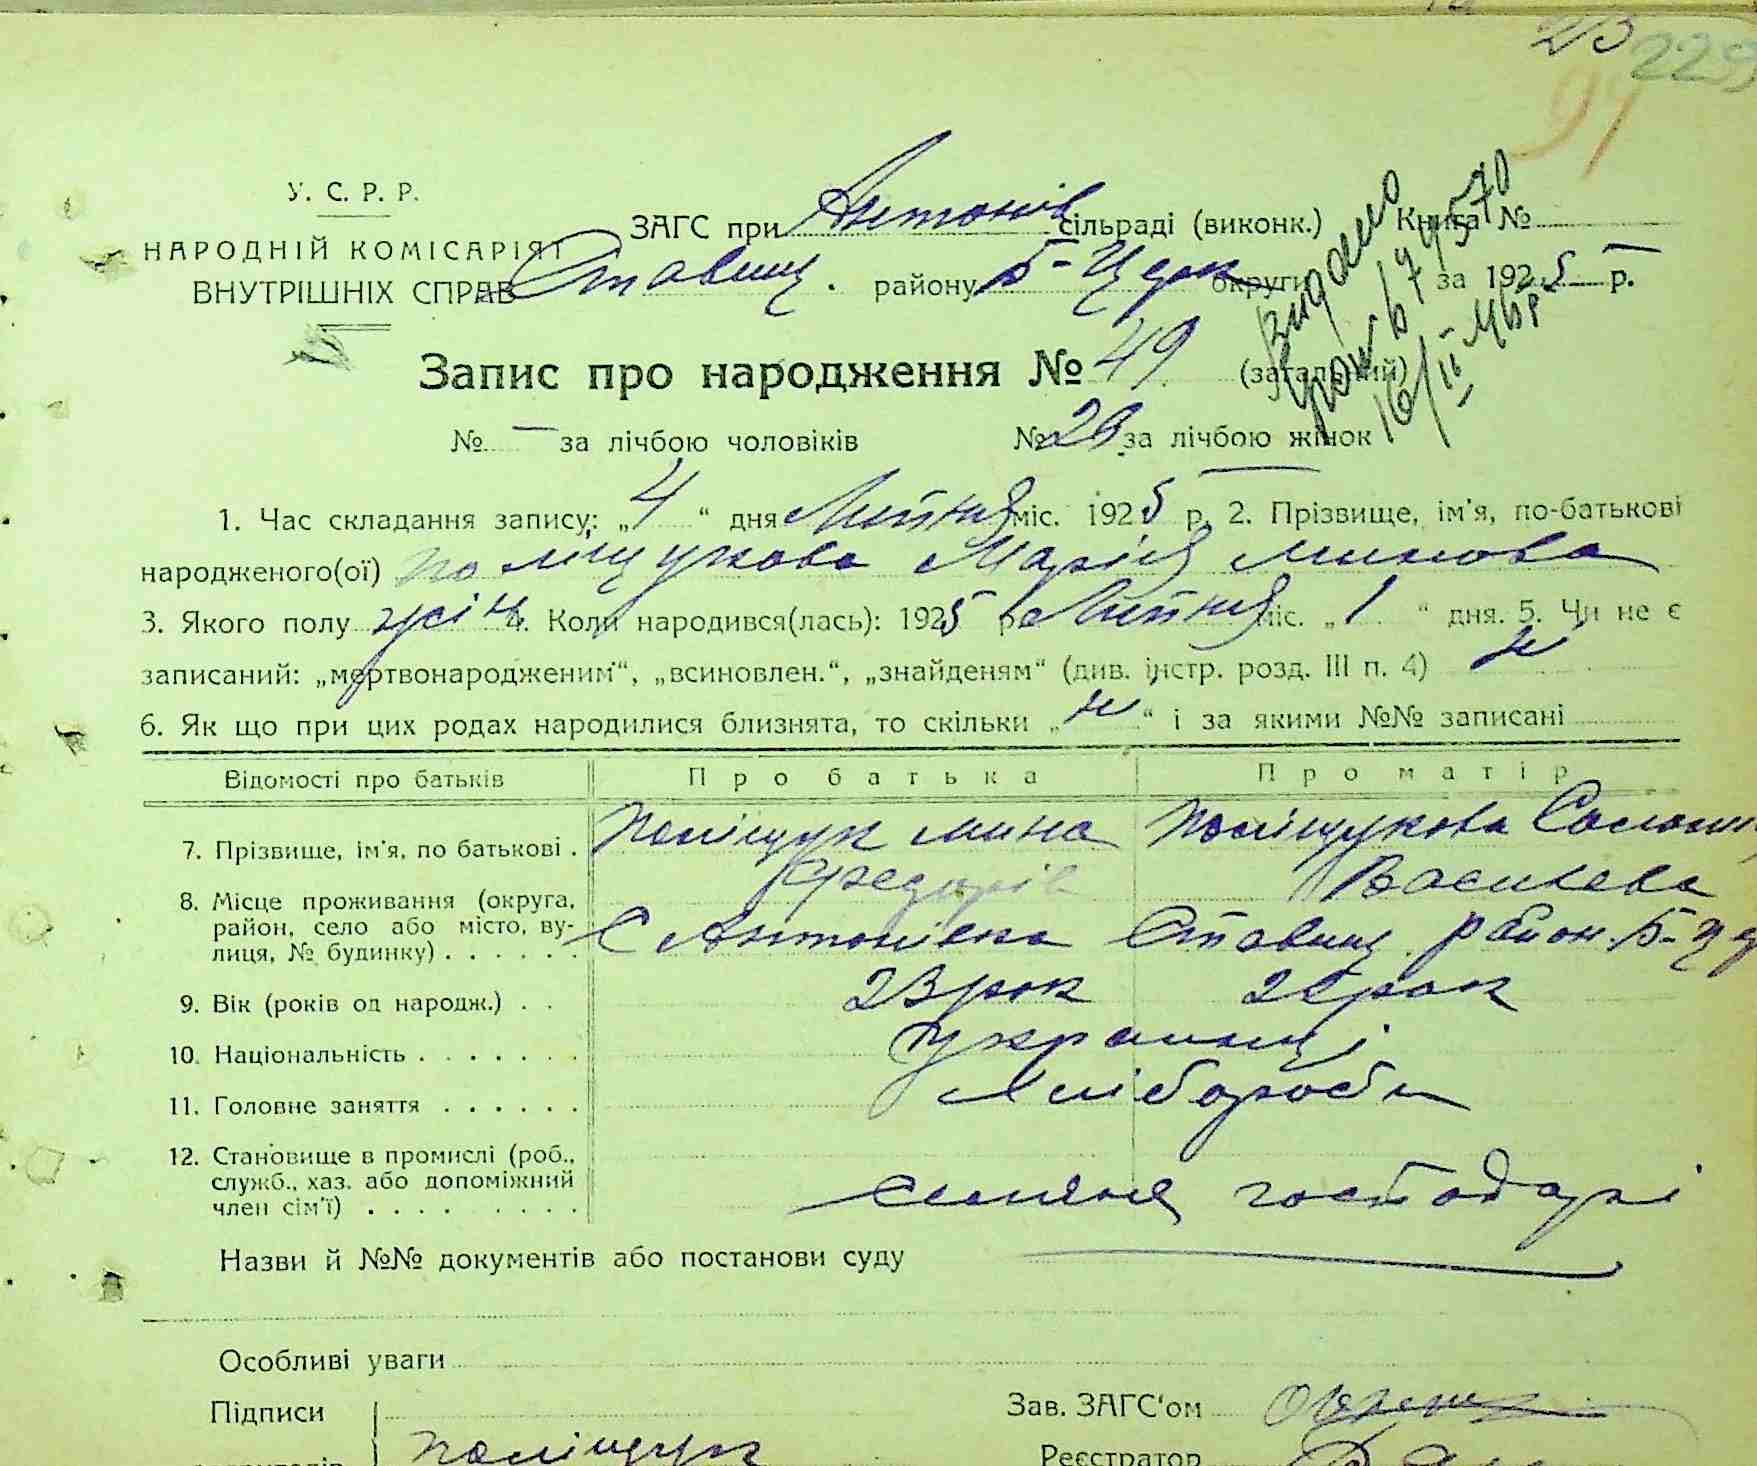 23
229
94
У. С. Р. Р.
НАРОДНІЙ КОМІСАРІЯТ
ВНУТРІШНІХ СПРАВ
ЗАГС при Антонів сільраді (виконк.) Книга №
Ставищ. району Б-Церк округи за 1925 р.
Видано
16/II
Запис про народження № 49 (загальний)
№ — за лічбою чоловіків № 26 за лічбою жінок
1. Час складання запису: „4“ дня Липня міс. 1925 р. 2. Прізвище, ім'я, по-батькові
народженого(ої) Поліщукова Марія Минова
3. Якого полу жін 4. Коли народився(лась): 1925 р. Липня міс. „1“ дня. 5. Чи не є
записаний: „мертвонародженим“, „всиновлен.“, „знайденям“ (див. інстр. розд. III п. 4) ні
6. Як що при цих родах народилися близнята, то скільки „ні“ і за якими №№ записані
Відомості про батьків Про батька Про матір
7. Прізвище, ім'я, по батькові . Поліщук Мина Поліщукова
Федорів Василева
8. Місце проживання (округа,
район, село або місто, ву-
лиця, № будинку) . . . . . . С Антонівка Ставищ район Б-Цер
9. Вік (років од народж.) . . 23 рок рок
10. Національність . . . . . . . Українці
11. Головне заняття . . . . . . Хлібороби
12. Становище в промислі (роб.,
служб., хаз. або допоміжний
член сім'ї) . . . . . . . . . господарі
Назви й №№ документів або постанови суду
Особливі уваги
Підписи Зав. ЗАГС'ом
Поліщук Реєстратор